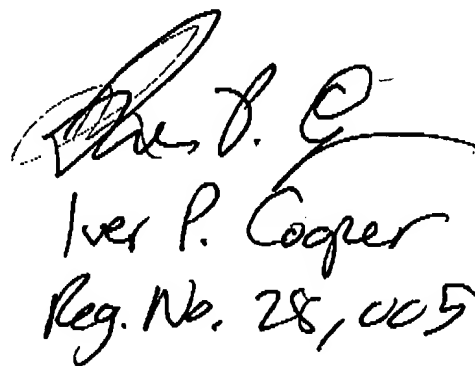 Iver P. C
Iver P. Cooper
Reg. No. 28,005